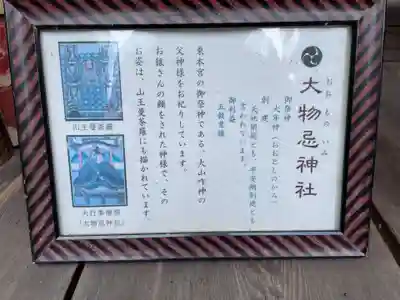 おお もの いみ
大物忌神社
御祭神
大年神(おおとしのかみ)
創建
天地開闢とも、平安朝創建とも
言われています。
御利益
五穀豊穣
東本宮の御祭神である、大山咋神の
父神様をお祀りしています。
お猿さんの顔をした神様で、その
お姿は、山王曼荼羅にも描かれています。
山王曼荼羅
大行事権現